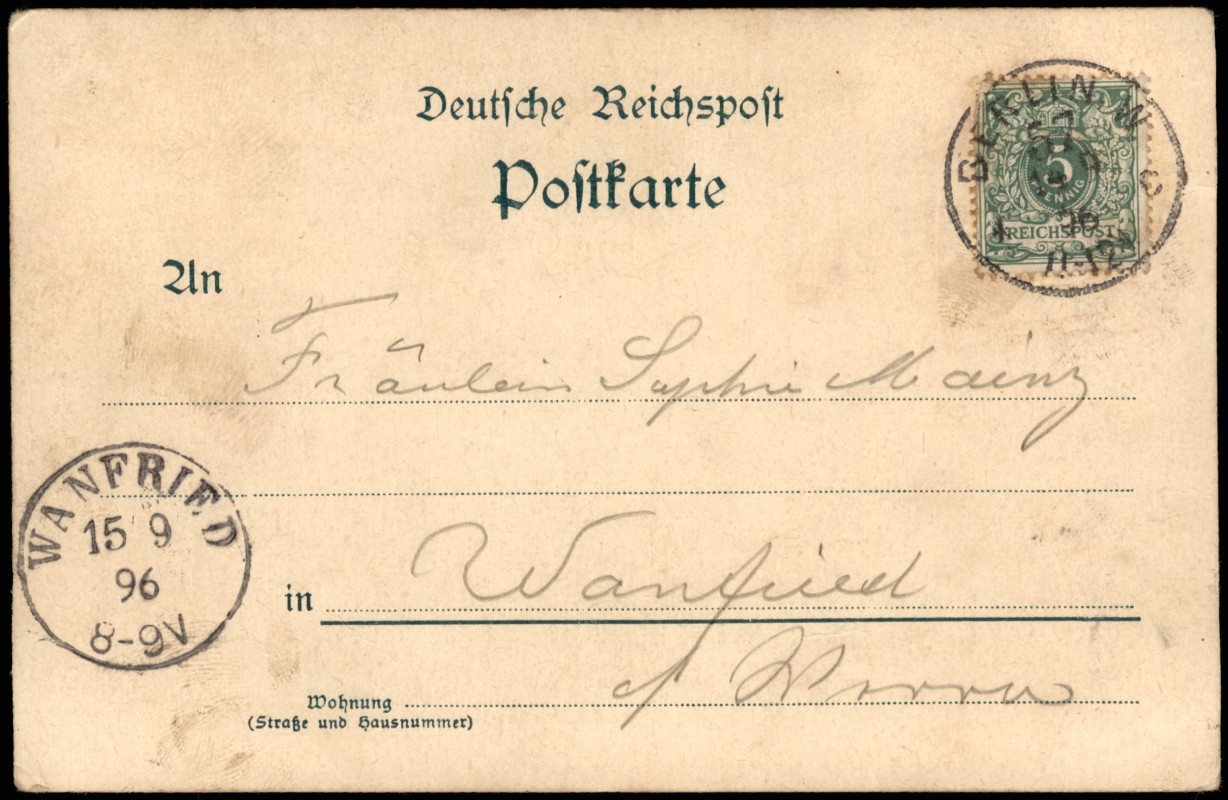 Deutsche Reichspost
Postkarte
BERLIN W
96
11-12
5
PFENNIG
REICHSPOST
An
Fräulein Sophie Mainz
WANFRIED
15 9
96
8-9V
in Wanfried
a/ Werra
Wohnung
(Straße und Hausnummer)